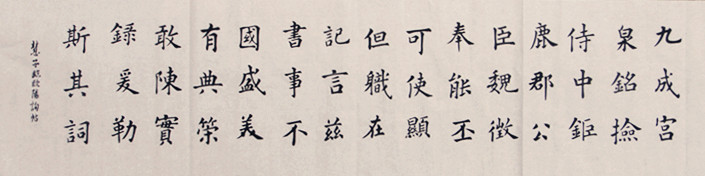 九成宮
泉銘撿
侍中鉅
鹿郡公
臣魏徵
奉能丕
可使顯
但職在
記言茲
書事不
國盛美
有典策
敢陳實
錄爰勒
斯其詞
慧子臨歐陽詢帖